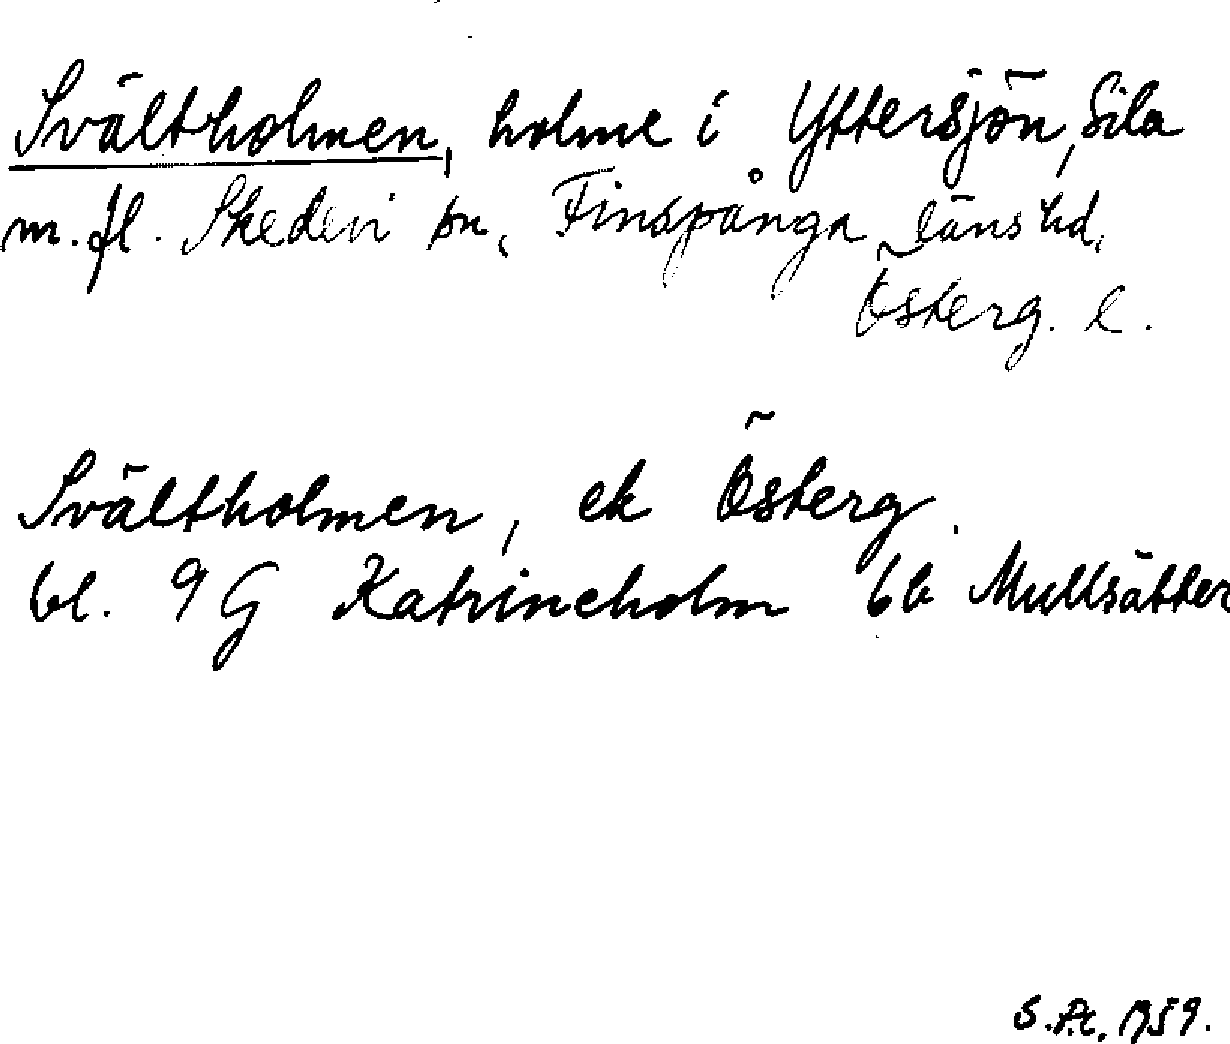 Svältholmen, holme i Yttersjön, Sila
m. fl. Skedevi sn, Finspånga läns hd,
Österg. l.
Svältholmen, ek Österg.
bl. 9 G Katrineholm 6b Mullsätter
S. Pt. 1959.